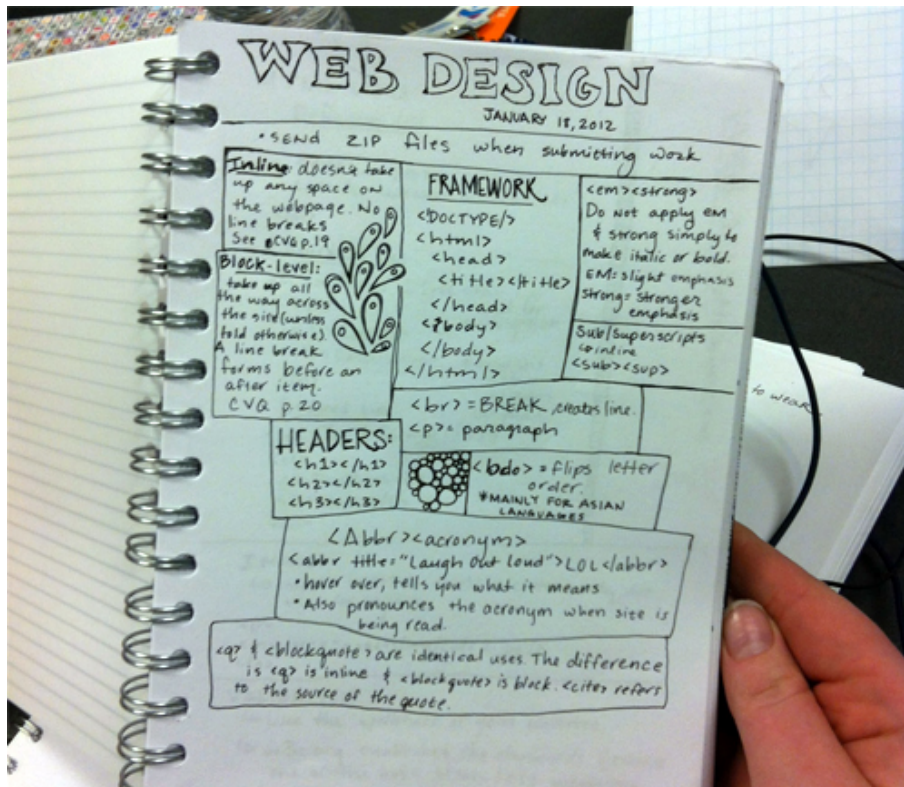 WEB DESIGN
JANUARY 18, 2012
• SEND ZIP files when submitting work
Inline: doesn't take
up any space on
the webpage. No
line breaks
See CVQ p.19
Block-level:
take up all
the way across
the site (unless
told otherwise).
A line break
forms before an
after item.
CVQ p. 20
FRAMEWORK
<!DOCTYPE/>
<html>
<head>
<title></title>
</head>
<body>
</body>
</html>
<em><strong>
Do not apply EM
& strong simply to
make italic or bold.
EM = slight emphasis
strong = stronger
emphasis
Sub/Superscripts
inline
<sub><sup>
<br> = BREAK, creates line.
<p> = paragraph
HEADERS:
<h1></h1>
<h2></h2>
<h3></h3>
<bdo> = flips letter
order.
*MAINLY FOR ASIAN
LANGUAGES
<Abbr><acronym>
<abbr title="Laugh Out Loud">LOL</abbr>
• hover over, tells you what it means
• Also pronounces the acronym when site is
being read.
<q> & <blockquote> are identical uses. The difference
is <q> is inline & <blockquote> is block. <cite> refers
to the source of the quote.
to wear